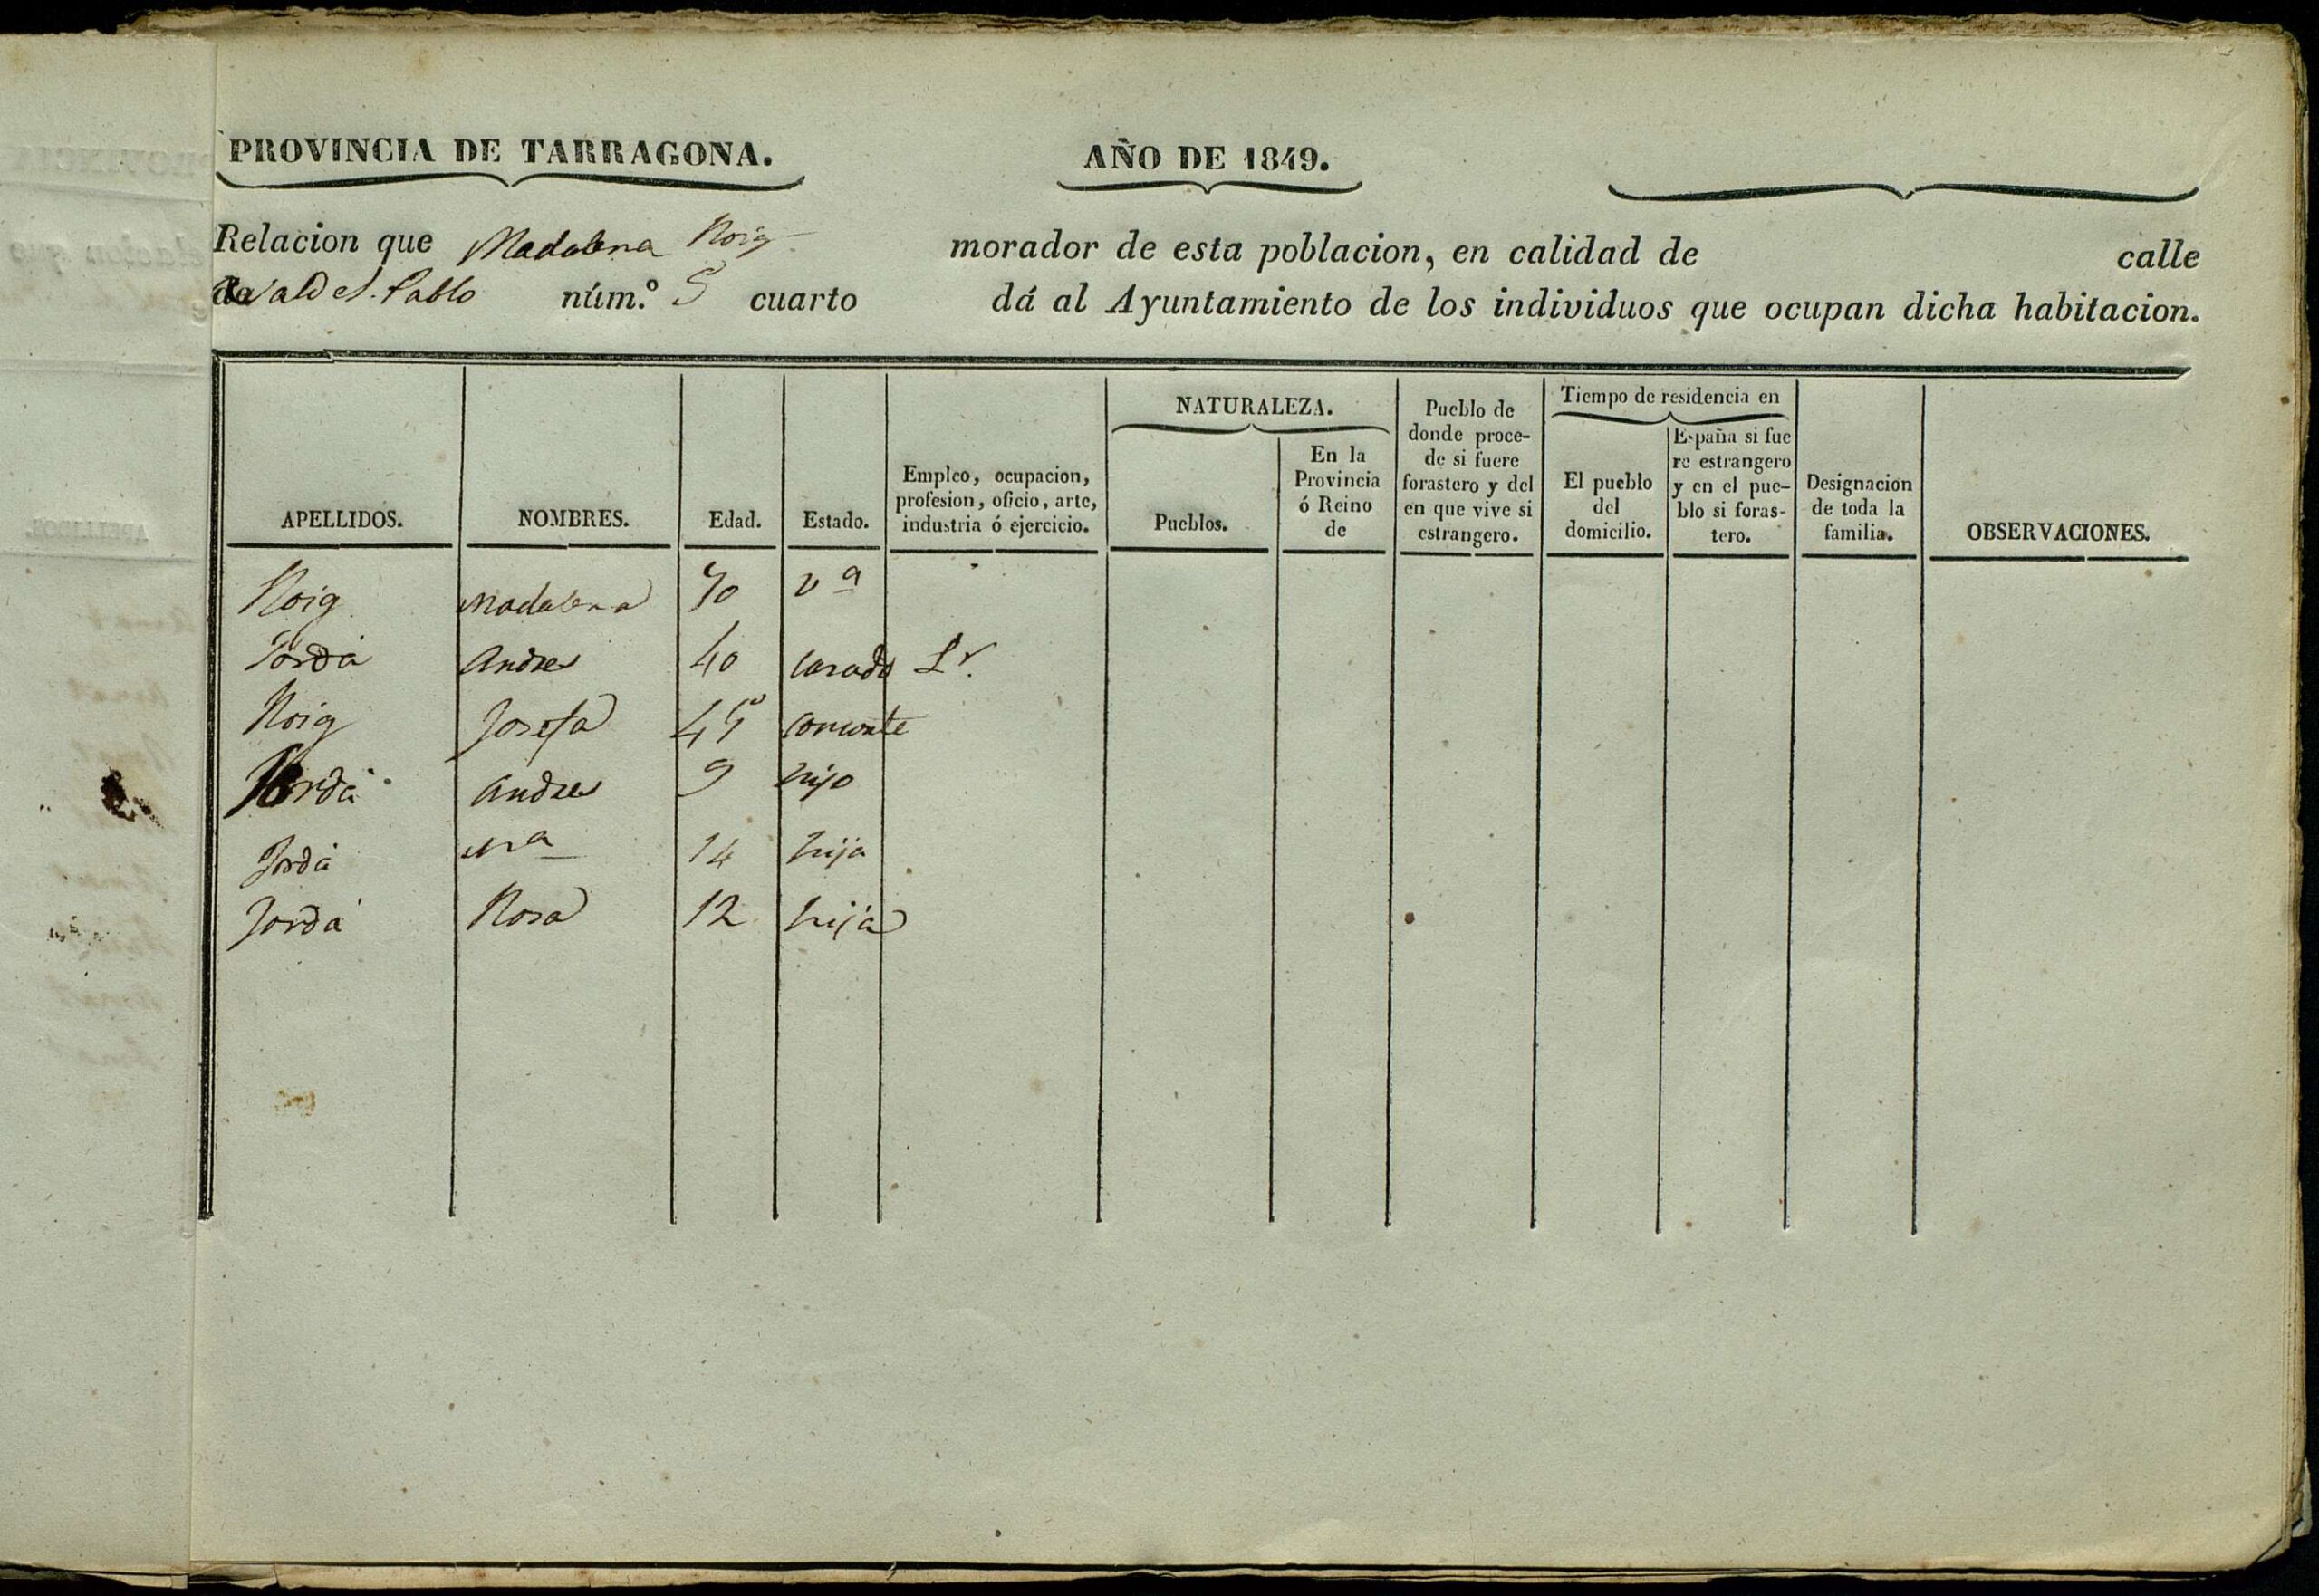 PROVINCIA DE TARRAGONA. AÑO DE 1849.
Relacion que Madalena Roig morador de esta poblacion, en calidad de calle
de S. Pablo núm.º 5 cuarto dá al Ayuntamiento de los individuos que ocupan dicha habitacion.
APELLIDOS. NOMBRES. Edad. Estado. Empleo, ocupacion, profesion, oficio, arte, industria ó ejercicio. NATURALEZA. Pueblos. En la Provincia ó Reino de Pueblo de donde procede si fuere forastero y del en que vive si estrangero. Tiempo de residencia en El pueblo del domicilio. España si fuere estrangero y en el pueblo si forastero. Designacion de toda la familia. OBSERVACIONES.
Roig Madalena 70 vª
Jordá Andres 40 casado Lr.
Roig Josefa 45 consorte
Jordá Andres 9 hijo
Jordá Mª 14 hija
Jordá Rosa 12 hija